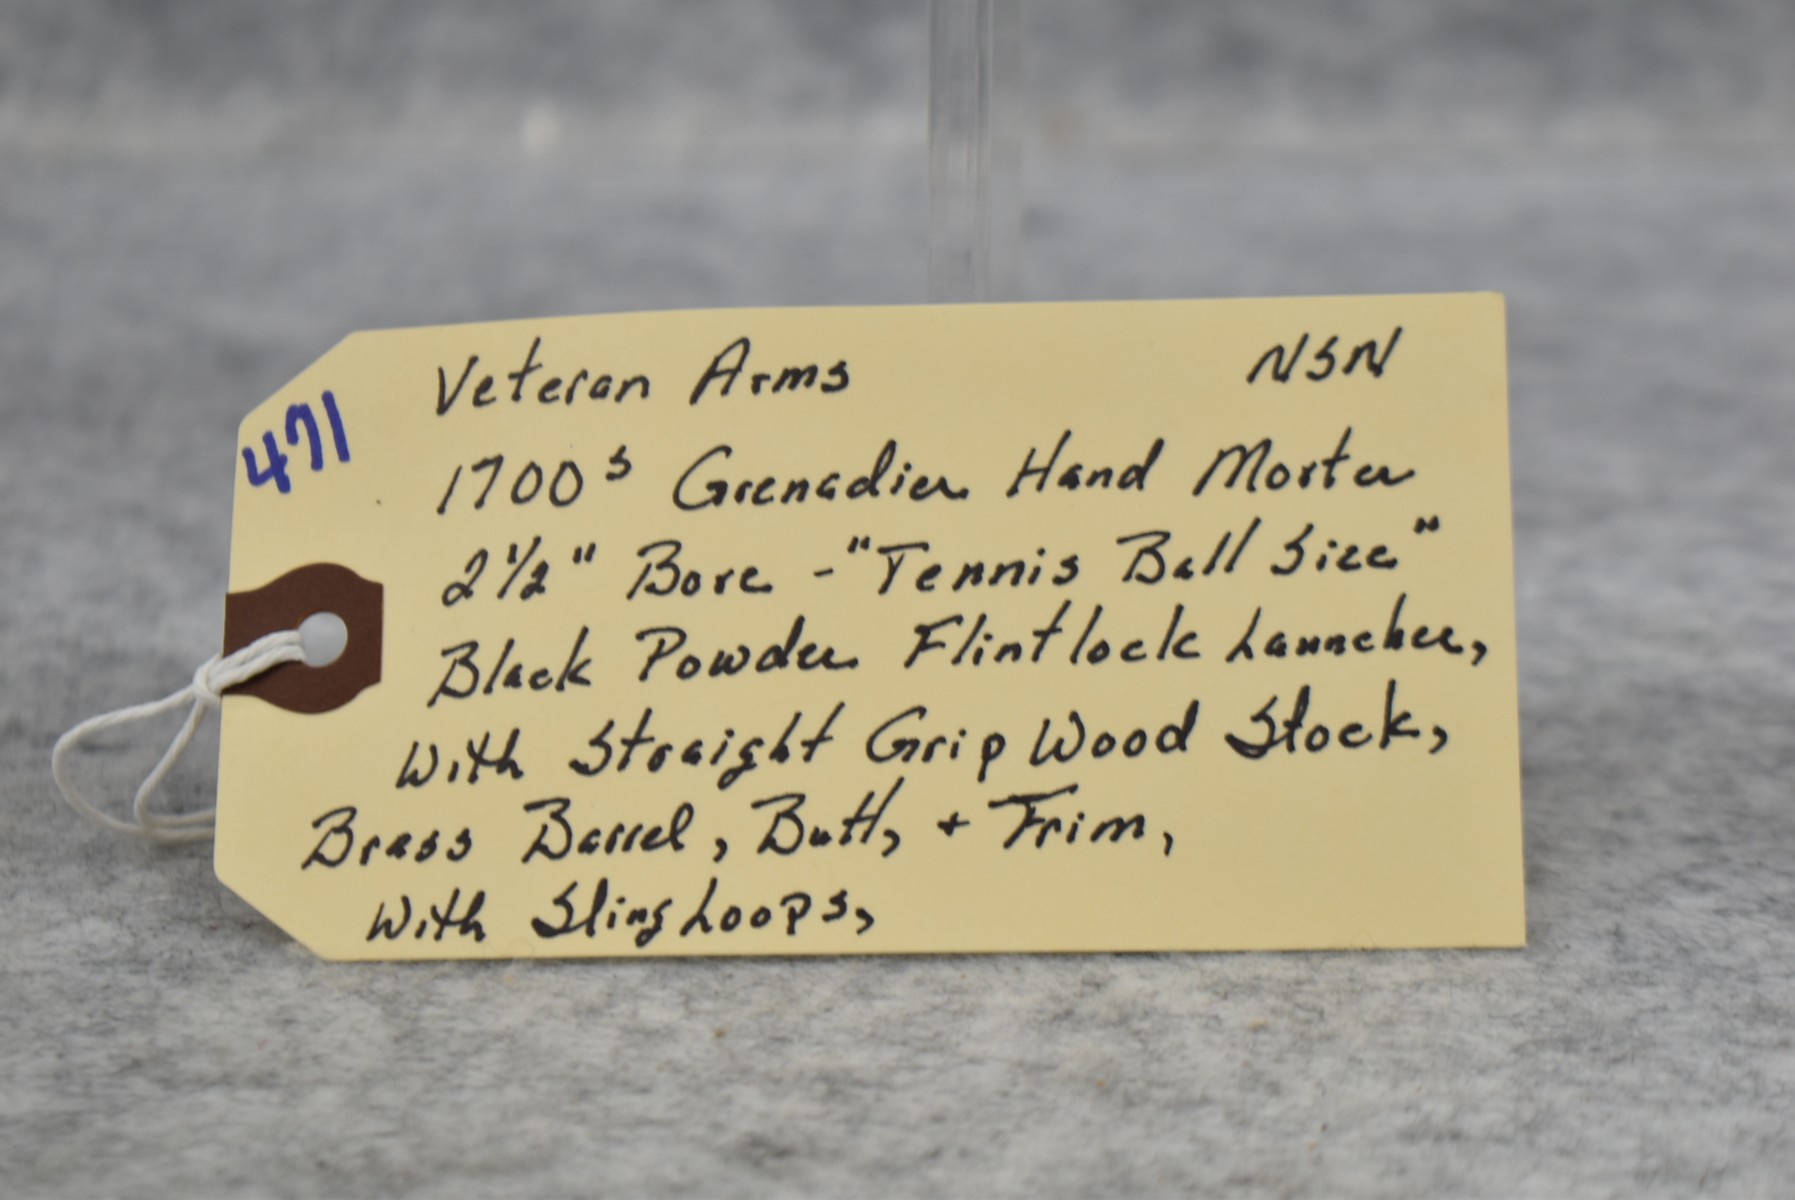 471
Veteran Arms NSN
1700s Grenadier Hand Morter
2 1/2" Bore - "Tennis Ball Size"
Black Powder Flintlock Launcher,
With Straight Grip Wood Stock,
Brass Barrel, Butt, + Trim,
With Sling Loops,